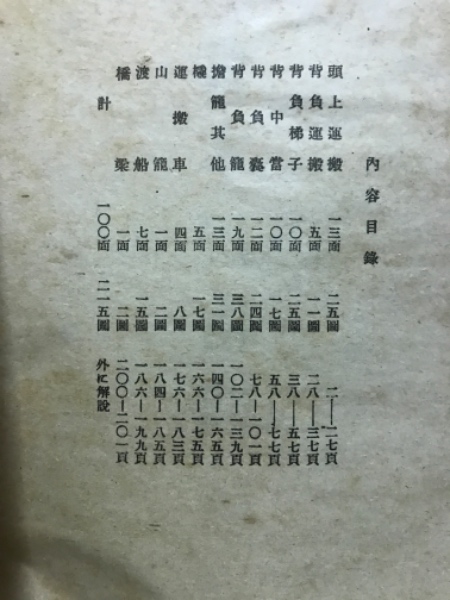 內容目錄
頭上運搬 一三面 二五圖 二―二七頁
背負運搬 五面 一一圖 二八―三七頁
背負梯子 一〇面 二五圖 三八―五七頁
背中當 一〇面 一七圖 五八―七七頁
背負袋 一二面 二四圖 七八―一〇一頁
背負籠 一九面 三八圖 一〇二―一三九頁
擔籠其他 一三面 三一圖 一四〇―一六五頁
橇 五面 一七圖 一六六―一七五頁
運搬車 四面 八圖 一七六―一八三頁
山籠 一面 二圖 一八四―一八五頁
渡船 七面 一五圖 一八六―一九九頁
橋梁 一面 二圖 二〇〇―二〇一頁
計 一〇〇面 二一五圖 外に解說